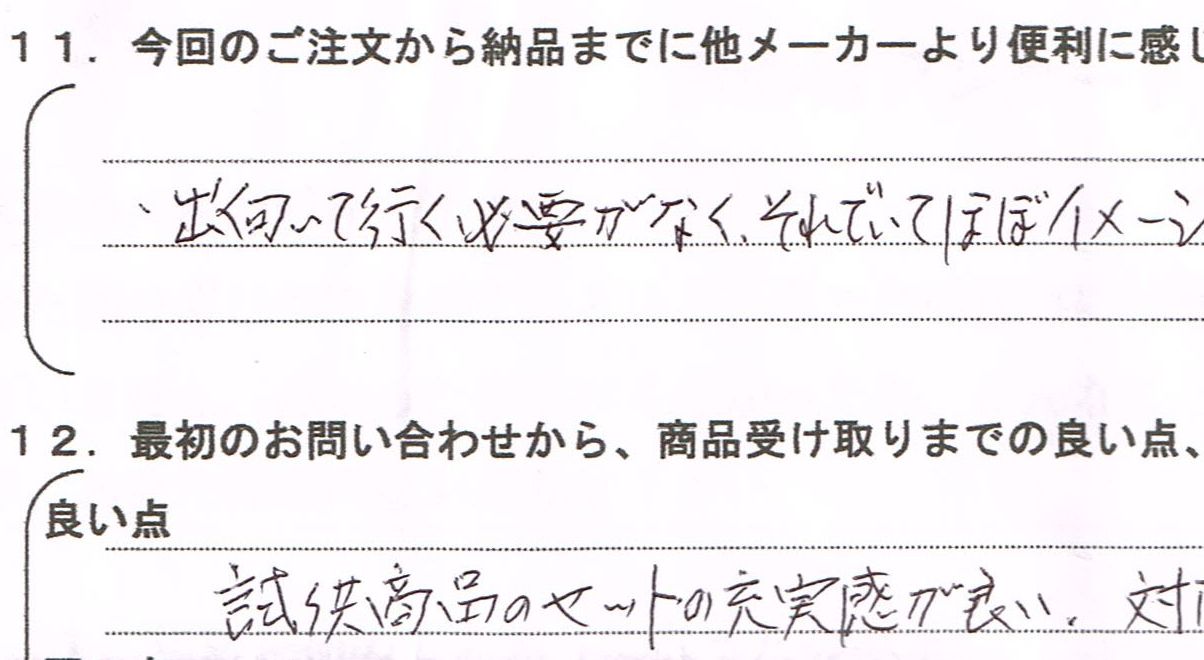 １１．今回のご注文から納品までに他メーカーより便利に感じ
・出向いて行く必要がなく、それでいてほぼイメージ
１２．最初のお問い合わせから、商品受け取りまでの良い点、
良い点
試供商品のセットの充実感が良い。対